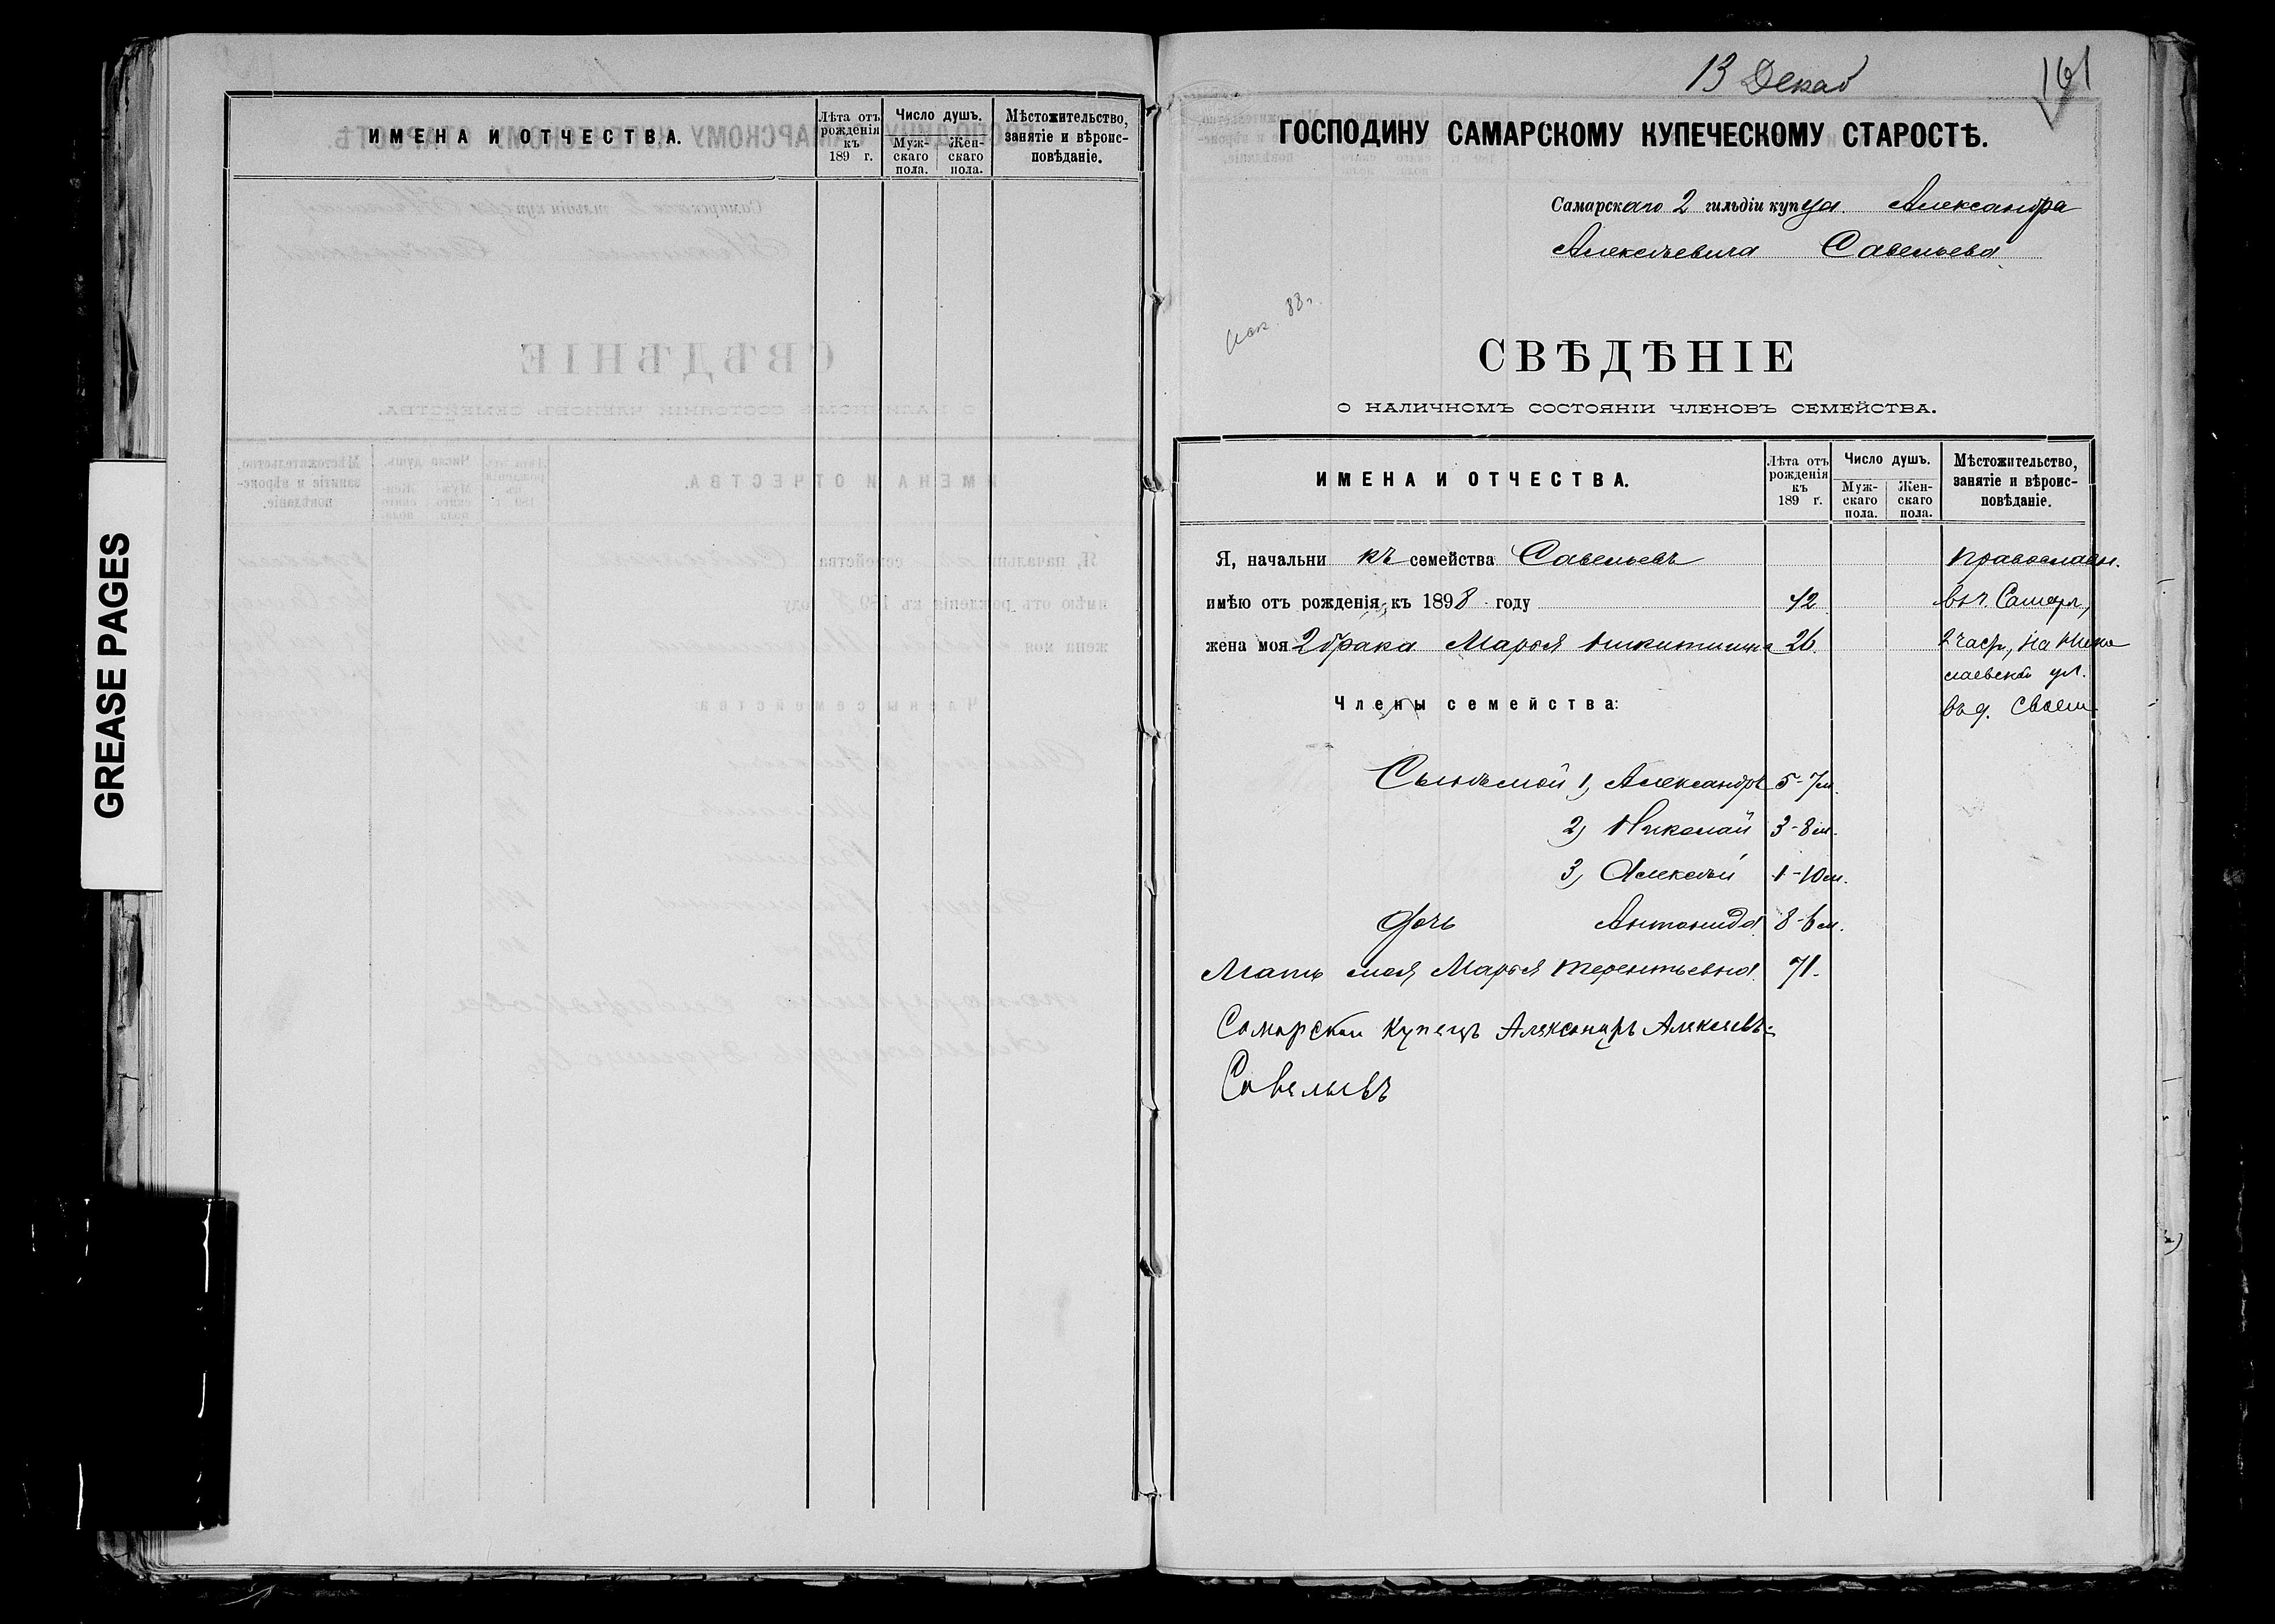 GREASE PAGES
ИМЕНА И ОТЧЕСТВА.
Лѣта отъ рожденія къ 189 г.
Число душъ.
Мужскаго пола.
Женскаго пола.
Мѣстожительство, занятіе и вѣроисповѣданіе.
13 Декаб
161
ГОСПОДИНУ САМАРСКОМУ КУПЕЧЕСКОМУ СТАРОСТѢ.
Самарскаго 2 гильдіи купца Александра
Алексѣевича Савельева
88 г.
СВѢДѢНІЕ
О НАЛИЧНОМЪ СОСТОЯНІИ ЧЛЕНОВЪ СЕМЕЙСТВА.
ИМЕНА И ОТЧЕСТВА.
Лѣта отъ рожденія къ 189 г.
Число душъ.
Мужскаго пола.
Женскаго пола.
Мѣстожительство, занятіе и вѣроисповѣданіе.
Я, начальникъ семейства Савельевъ православн.
имѣю отъ рожденія къ 1898 году 42 въ г. Самар,
жена моя 2 брака Марья Никитишна 26. 2 част, на Нико
лаевской ул.
Члены семейства: въ д. своем
Сыновья мои 1, Александръ 5-7 м.
2, Николай 3-8 м.
3, Алексѣй 1-10 м.
Дочь Антонида 8-6 м.
Мать моя, Марья Терентьевна 71.
Самарскаи Купецъ Александръ Алексевъ
Савельевъ